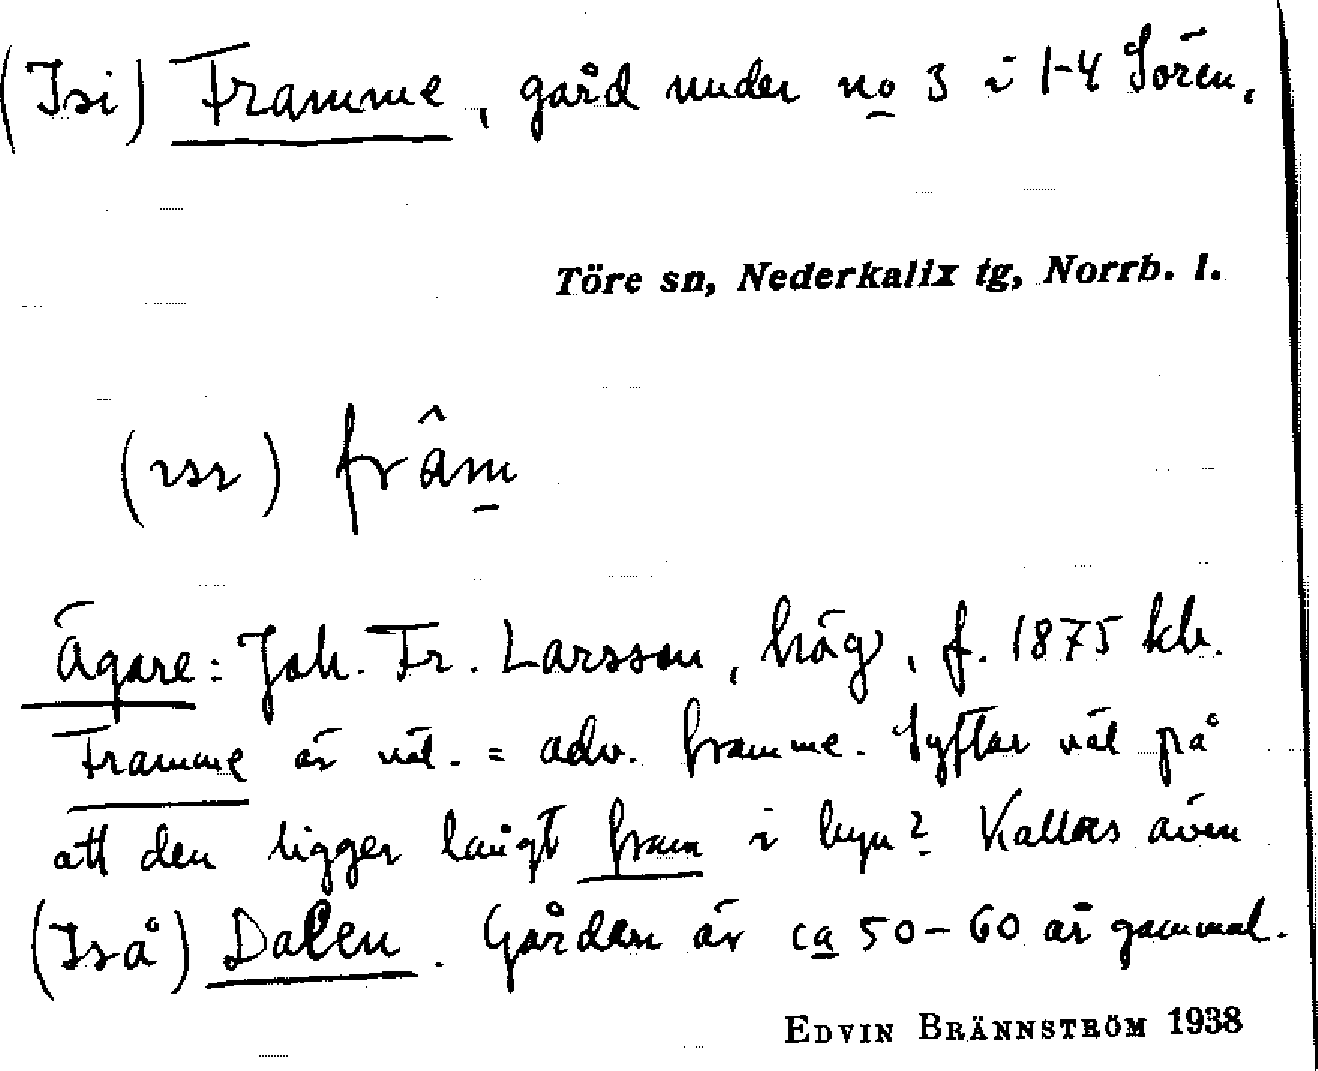 (Isi) Framme, gård under no 3 i 1-4 Sören.
Töre sn, Nederkalix tg, Norrb. l.
(rsr) frâm
Ägare: Joh. Fr. Larsson, häg, f. 1875 kb.
Framme är väl. = adv. framme. Syftar väl på
att den ligger långt fram i byn? Kallas även
(Iså) Dalen. Gården är ca 50-60 år gammal.
EDVIN BRÄNNSTRÖM 1938